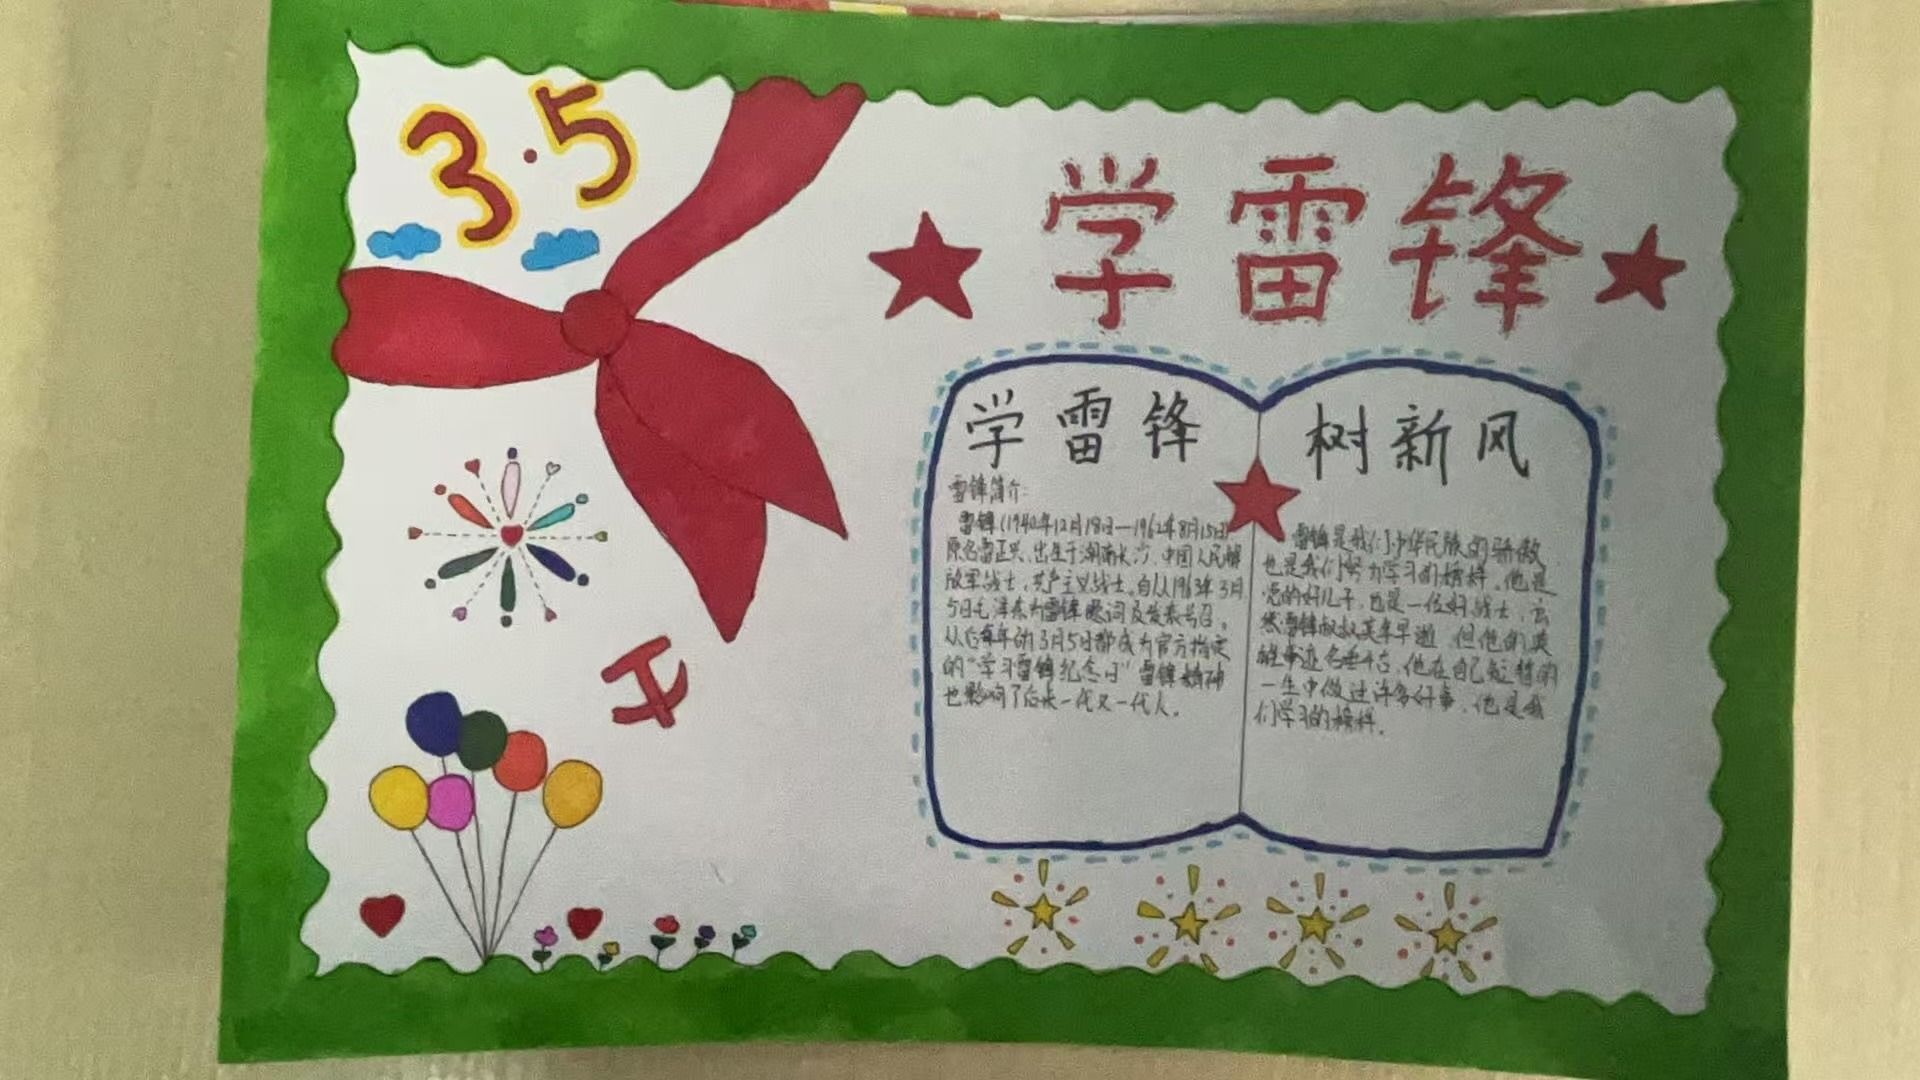 3·5
学雷锋
学雷锋
雷锋简介:
雷锋(1940年12月18日—1962年8月15日)
原名雷正兴,出生于湖南长沙,中国人民解
放军战士,共产主义战士。自从1963年3月
5日毛泽东为雷锋题词及发表号召。
从后每年的3月5日都成为官方指定
的“学习雷锋纪念日”雷锋精神
也影响了后来一代又一代人。
树新风
雷锋是我们中华民族的骄傲,
也是我们努力学习的榜样。他是
党的好儿子,也是一位好战士,
然雷锋叔叔英年早逝,但他的英
雄事迹名垂千古,他在自己短暂的
一生中做过许多好事,他是我
们学习的榜样。